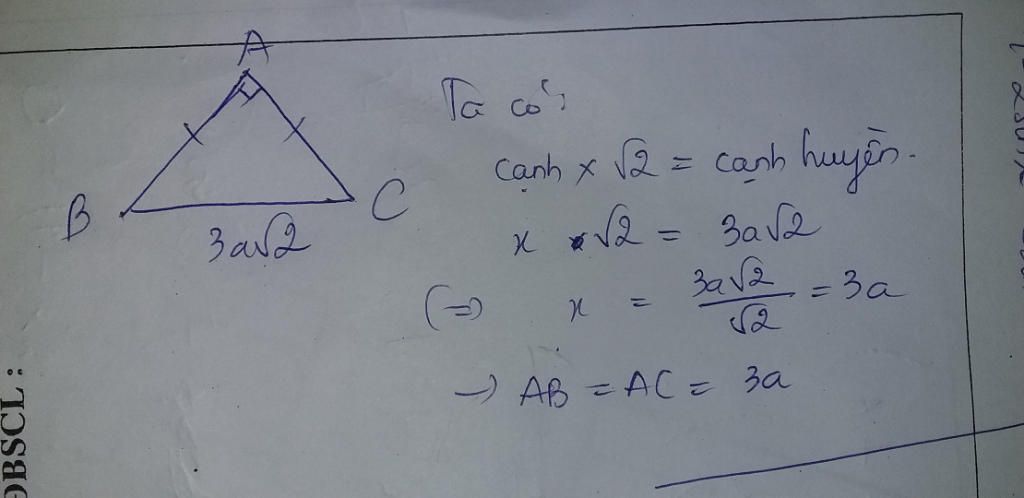 A
B
C
3a√2
Ta có:
cạnh x √2 = cạnh huyền.
x x √2 = 3a√2
(=) x = 3a√2 / √2 = 3a
→ AB = AC = 3a
ĐBSCL :